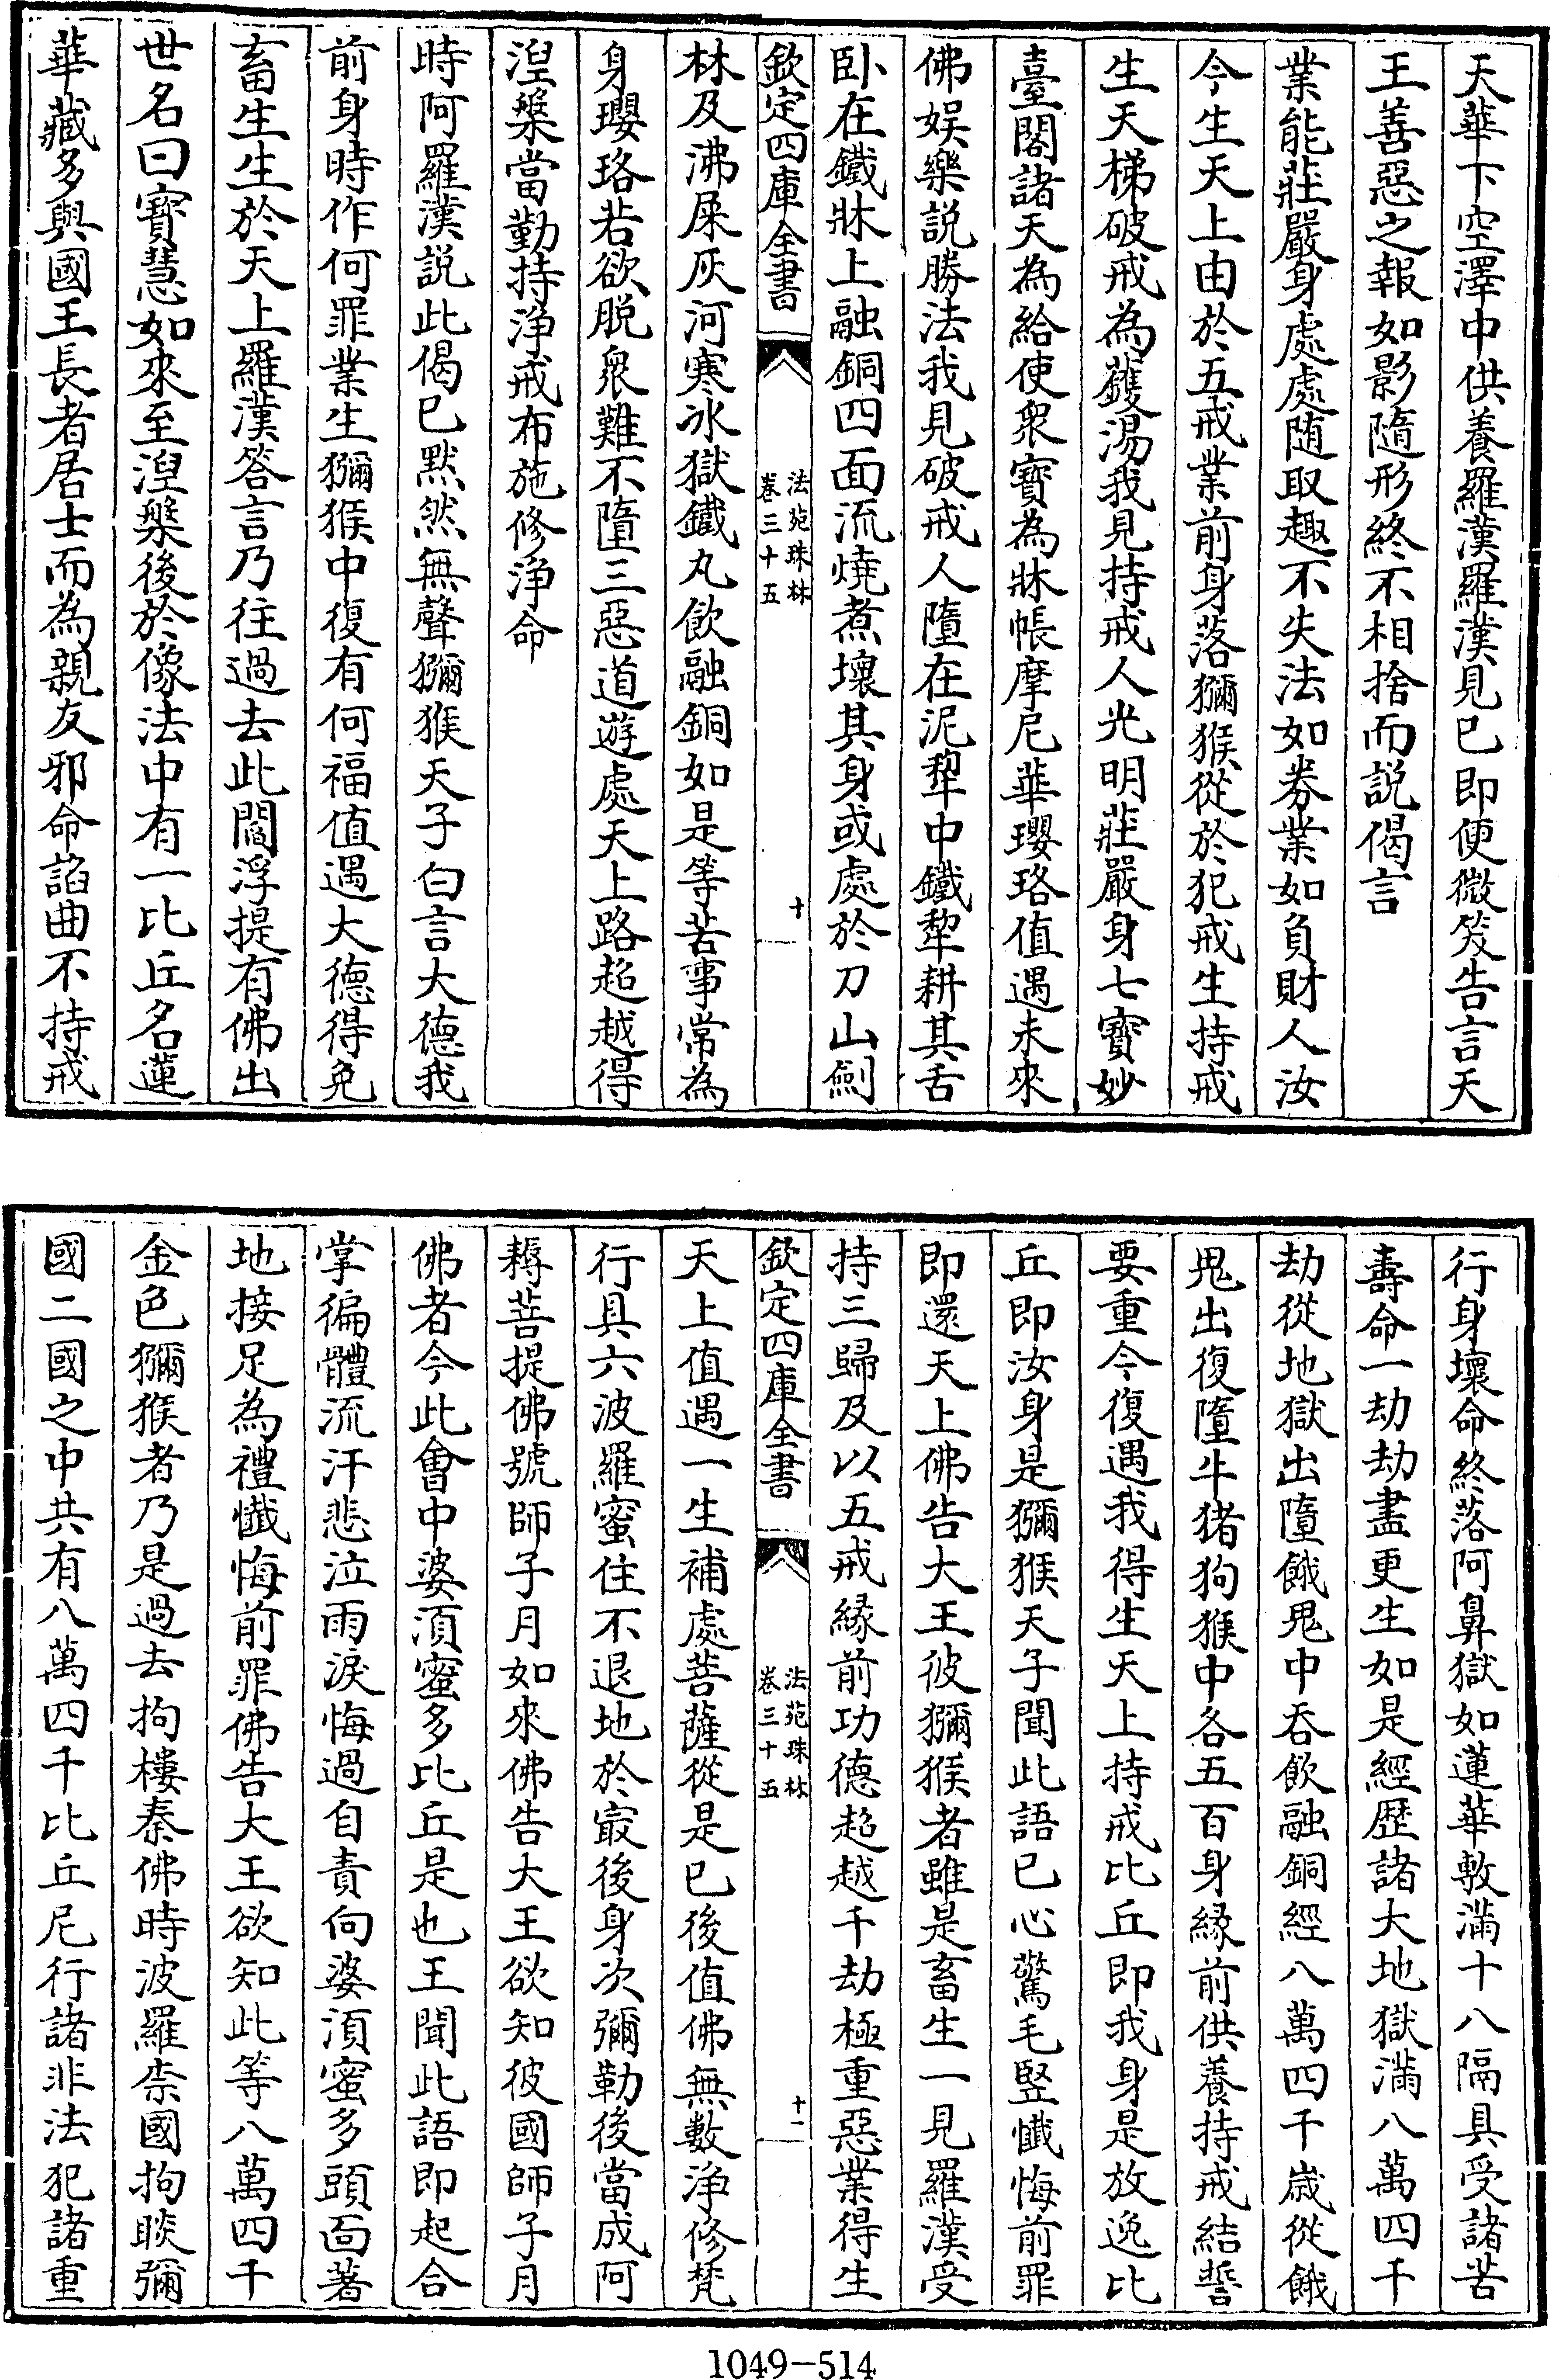 天華下空澤中供養羅漢羅漢見已即便微笑告言天
王善惡之報如影隨形終不相捨而説偈言
業能莊嚴身處處随取趣不失法如券業如負財人汝
今生天上由於五戒業前身落獼猴從於犯戒生持戒
生天梯破戒為鑊湯我見持戒人光明莊嚴身七寶妙
臺閣諸天為給使衆寶為牀帳摩尼華瓔珞值遇未來
佛娱樂説勝法我見破戒人墮在泥犂中鐵犂耕其舌
卧在鐵牀上融銅四面流燒煮壞其身或處於刀山劍
欽定四庫全書
法苑珠林
卷三十五
十
林及沸屎灰河寒冰獄鐵丸飲融銅如是等苦事常為
身瓔珞若欲脱衆難不墮三惡道遊處天上路超越得
湼槃當勤持浄戒布施修浄命
時阿羅漢説此偈已黙然無聲獼猴天子白言大德我
前身時作何罪業生獼猴中復有何福值遇大德得免
畜生生於天上羅漢答言乃往過去此閻浮提有佛出
世名曰寳慧如來至湼槃後於像法中有一比丘名蓮
華藏多與國王長者居士而為親友邪命諂曲不持戒
行身壞命終落阿鼻獄如蓮華敷滿十八隔具受諸苦
壽命一劫劫盡更生如是經歴諸大地獄滿八萬四千
劫從地獄出墮餓鬼中吞飲融銅經八萬四千歳從餓
鬼出復墮牛猪狗猴中各五百身縁前供養持戒結誓
要重今復遇我得生天上持戒比丘即我身是放逸比
丘即汝身是獼猴天子聞此語已心驚毛竪懺悔前罪
即還天上佛告大王彼獼猴者雖是畜生一見羅漢受
持三歸及以五戒縁前功德超越千劫極重惡業得生
欽定四庫全書
法苑珠林
卷三十五
十一
天上值遇一生補處菩薩從是已後值佛無數浄修梵
行具六波羅蜜住不退地於㝡後身次彌勒後當成阿
耨菩提佛號師子月如來佛告大王欲知彼國師子月
佛者今此會中婆須蜜多比丘是也王聞此語即起合
掌徧體流汗悲泣雨淚悔過自責向婆須蜜多頭面著
地接足為禮懺悔前罪佛告大王欲知此等八萬四千
金色獼猴者乃是過去拘樓秦佛時波羅柰國拘睒彌
國二國之中共有八萬四千比丘尼行諸非法犯諸重
1049-514